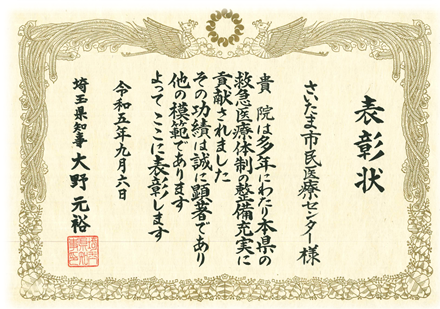 表彰状
さいたま市民医療センター様
貴 院は多年にわたり本県の
救急医療体制の整備充実に
貢献されました
その功績は誠に顕著であり
他の模範であります
よってここに表彰します
令和五年九月六日
埼玉県知事 大野元裕